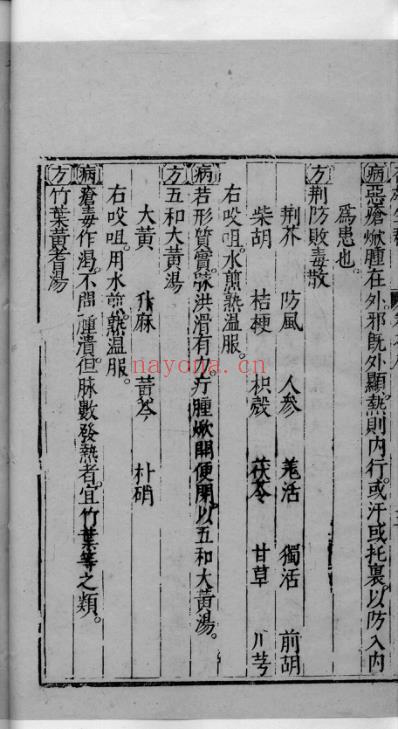 病惡瘡焮腫在外邪既外顯熱則内行或汗或托裏以防入内
爲患也
方荆防敗毒散
荆芥 防風 人參 羗活 獨活 前胡
柴胡 桔梗 枳殼 茯苓 甘草 川芎
右㕮咀水煎熱温服
病若形質實脉洪滑有力疔腫焮開便閉以五和大黄湯
方五和大黄湯
大黄 升麻 黄芩 朴硝
右㕮咀用水煎熱温服
病瘡毒作渴不問腫潰但脉數發熱者宜竹葉等之類
方竹葉黄耆湯
nayona.cn